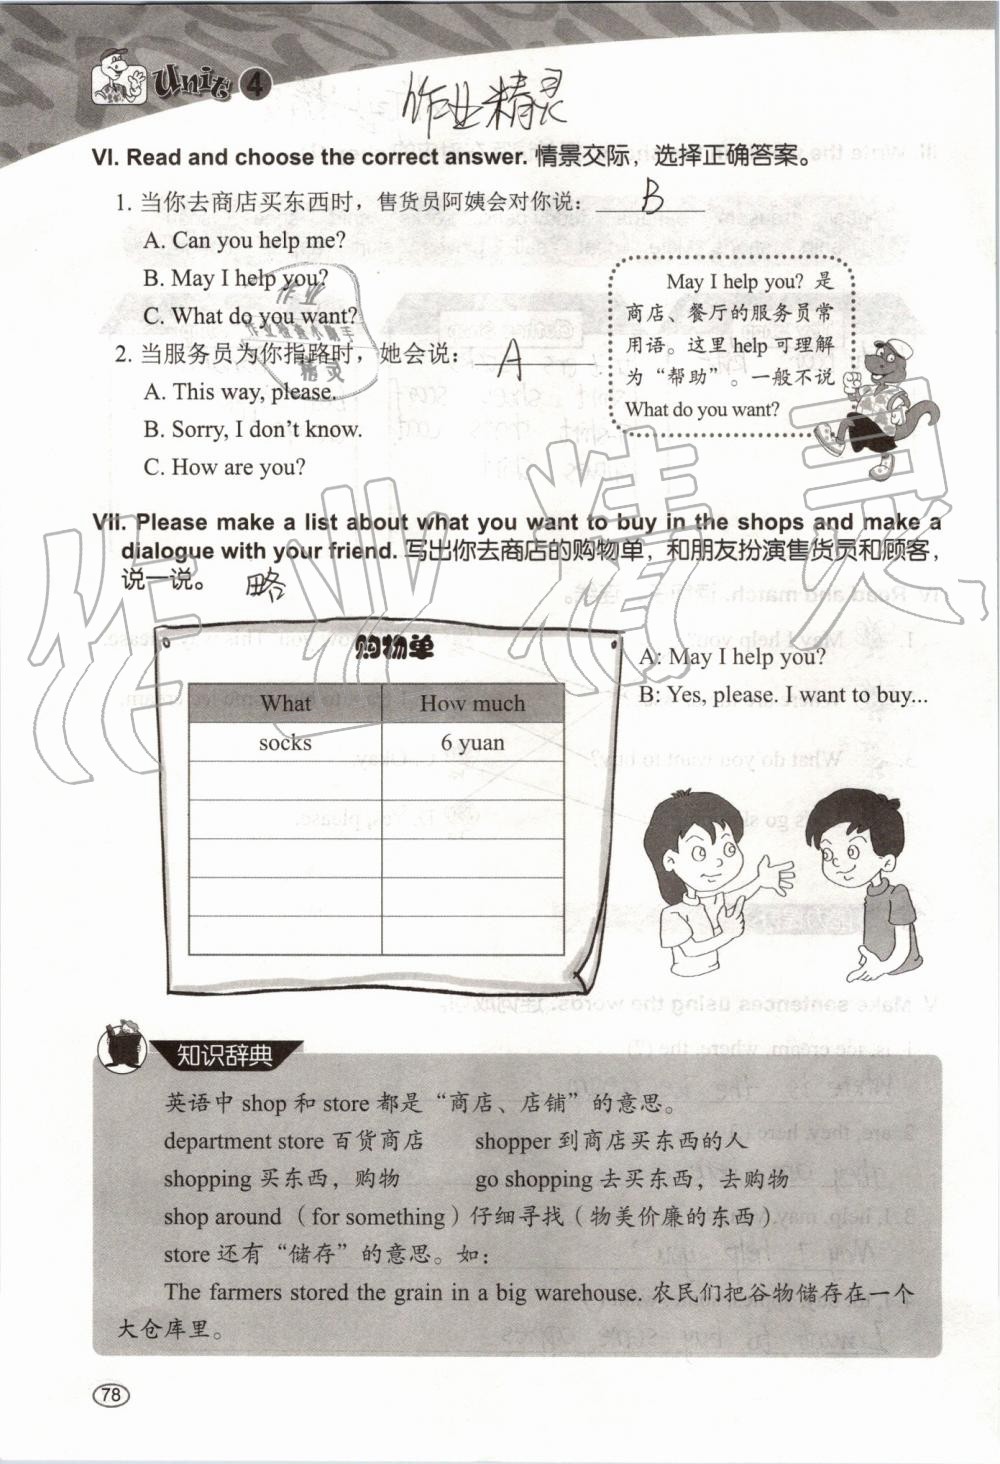 Unit 4
作业精灵
VI. Read and choose the correct answer. 情景交际，选择正确答案。
1. 当你去商店买东西时，售货员阿姨会对你说：B
A. Can you help me?
B. May I help you?
C. What do you want?
2. 当服务员为你指路时，她会说：A
A. This way, please.
B. Sorry, I don't know.
C. How are you?
May I help you? 是
商店、餐厅的服务员常
用语。这里 help 可理解
为“帮助”。一般不说
What do you want?
作业
作业检查小帮手
精灵
VII. Please make a list about what you want to buy in the shops and make a
dialogue with your friend. 写出你去商店的购物单，和朋友扮演售货员和顾客，
说一说。 略
作业精灵
购物单
What How much
socks 6 yuan
A: May I help you?
B: Yes, please. I want to buy...
知识辞典
英语中 shop 和 store 都是“商店、店铺”的意思。
department store 百货商店 shopper 到商店买东西的人
shopping 买东西，购物 go shopping 去买东西，去购物
shop around（for something）仔细寻找（物美价廉的东西）
store 还有“储存”的意思。如：
The farmers stored the grain in a big warehouse. 农民们把谷物储存在一个
大仓库里。
78